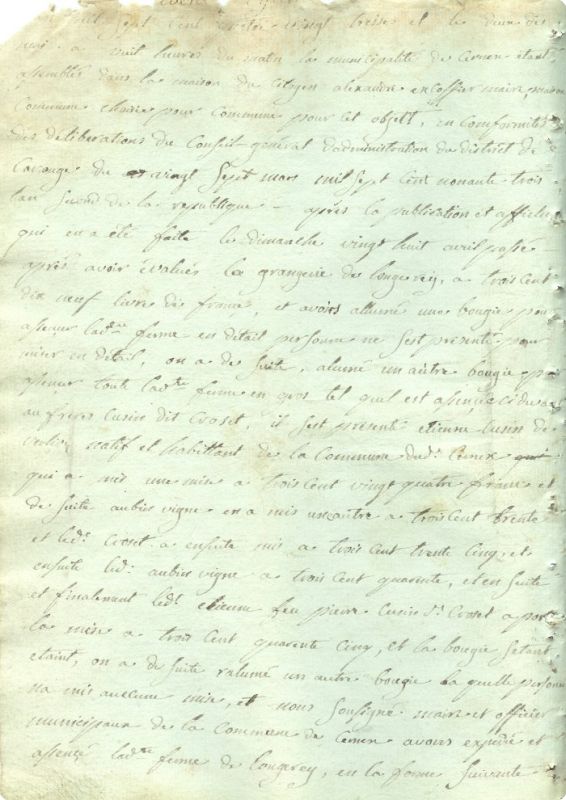 mil sept cent quatre vingt treise et le deux de
mai a huit heures du matin la municipalité de Cernex etant
assemblés dans la maison du Citoyen alexandre excoffier maire, maison
Commune choisie pour commune pour cet objet, en Conformité
des deliberations du Conseil général d'administration du district de
Carouge du vingt Sept mars mil sept Cent nonante trois
lan second de la republique – après la publication et affiche
qui en a été faite le dimanche vingt huit avril passé
après avoir évalués la grangerie de longerey, a trois Cent
dix neuf livre de france, et avoirs allumé une bougie pour
assencer ladte ferme en detail personne ne sest présenté pour
miser en detail, on a de suite, alumé un autre bougie pour
assencer toute ladte ferme en gros tel quel est assencé cidevant
au freres Cusin dit Croset, il sest presenté etienne Cusin de
natif et habittant de la Commune dud. Cernex
qui a mis une mise a trois Cent vingt quatre franc et
de suite aubin vigne en a mis un autre a trois Cent trente
et led. Croset a ensuite mis a trois Cent trente Cinq, et
ensuite led. aubin vigne a trois Cent quarente, et en suite
et finalement led. etienne feu pierre Cusin dt. Croset a porté
la mise a trois Cent quarente Cinq, et la bougie setant
etaint, on a de suite ralumé un autre bougie la quelle personne
na mis aucune mise, et nous Soussigné maire et officier
municipaux de la Commune de Cernex avons expedié et
assencé ladte ferme de longerey, en la forme suivante